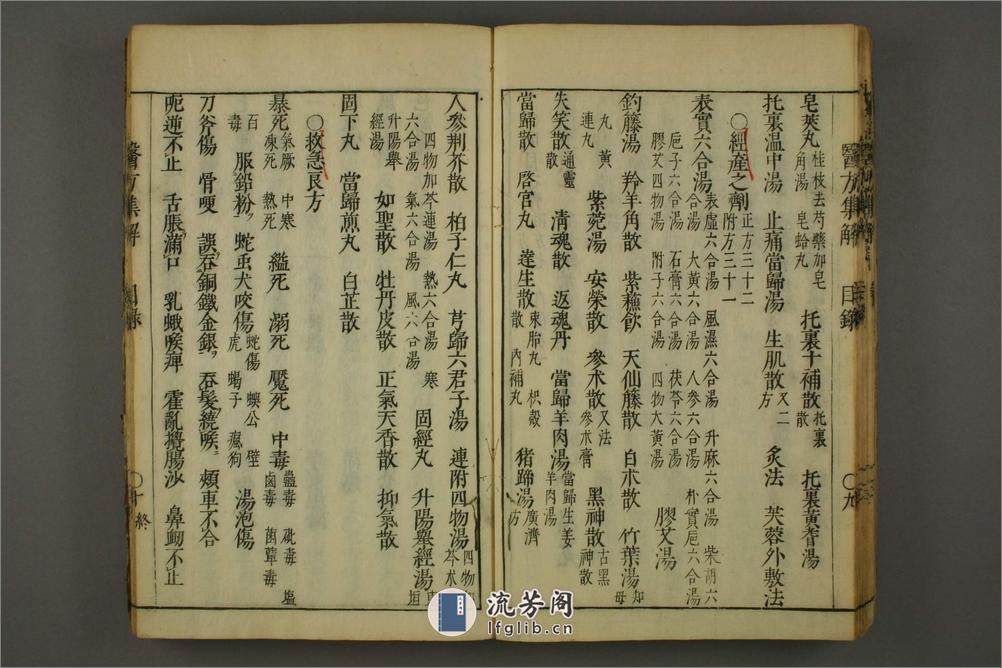 醫方集解 目錄 〇九
皂莢丸 桂枝去芍藥加皂角湯 皂蛤丸 托裏十補散 托裏散 托裏黃耆湯
托裏溫中湯 止痛當歸湯 生肌散 又二方 炙法 芙蓉外敷法
〇經產之劑 正方三十二 附方三十一
表實六合湯 表虛六合湯 風濕六合湯 升麻六合湯 柴胡六合湯 大黃六合湯 人參六合湯 朴實六合湯
梔子六合湯 石膏六合湯 茯苓六合湯 膠艾湯
膠艾四物湯 附子六合湯 四物大黃湯
釣藤湯 羚羊角散 紫蘇飲 天仙藤散 白朮散 竹葉湯 知母丸 黃連丸
紫菀湯 安榮散 參朮散 又法 參朮膏 黑神散 古黑神散
失笑散 通靈散 清魂散 返魂丹 當歸羊肉湯 當歸生姜羊肉湯
當歸散 啓宮丸 達生散 束胎丸 枳殼散 內補丸 猪蹄湯 廣濟方
人參荆芥散 柏子仁丸 芎歸六君子湯 連附四物湯 四物加芩連湯 熱六合湯 寒六合湯 氣六合湯 風六合湯
固經丸 升陽舉經湯 升陽舉經湯
如聖散 牡丹皮散 正氣天香散 抑氣散
固下丸 當歸煎丸 白芷散
〇救急良方
暴死 氣厥 中寒 凍死 熱死 縊死 溺死 魘死 中毒 蠱毒 砒毒 鹵毒 菌蕈毒 鹽 百毒
服鉛粉 蛇虫犬咬傷 蛇傷 蜈公 壁虎 蝎子 瘋狗 湯泡傷
刀斧傷 骨哽 誤吞銅鐵金銀 吞髮繞喉 頰車不合
呃逆不止 舌脹滿口 乳蛾喉痺 霍亂攪腸沙 鼻衂不止
醫方集解 目錄 〇十終
流芳阁
lfglib.cn